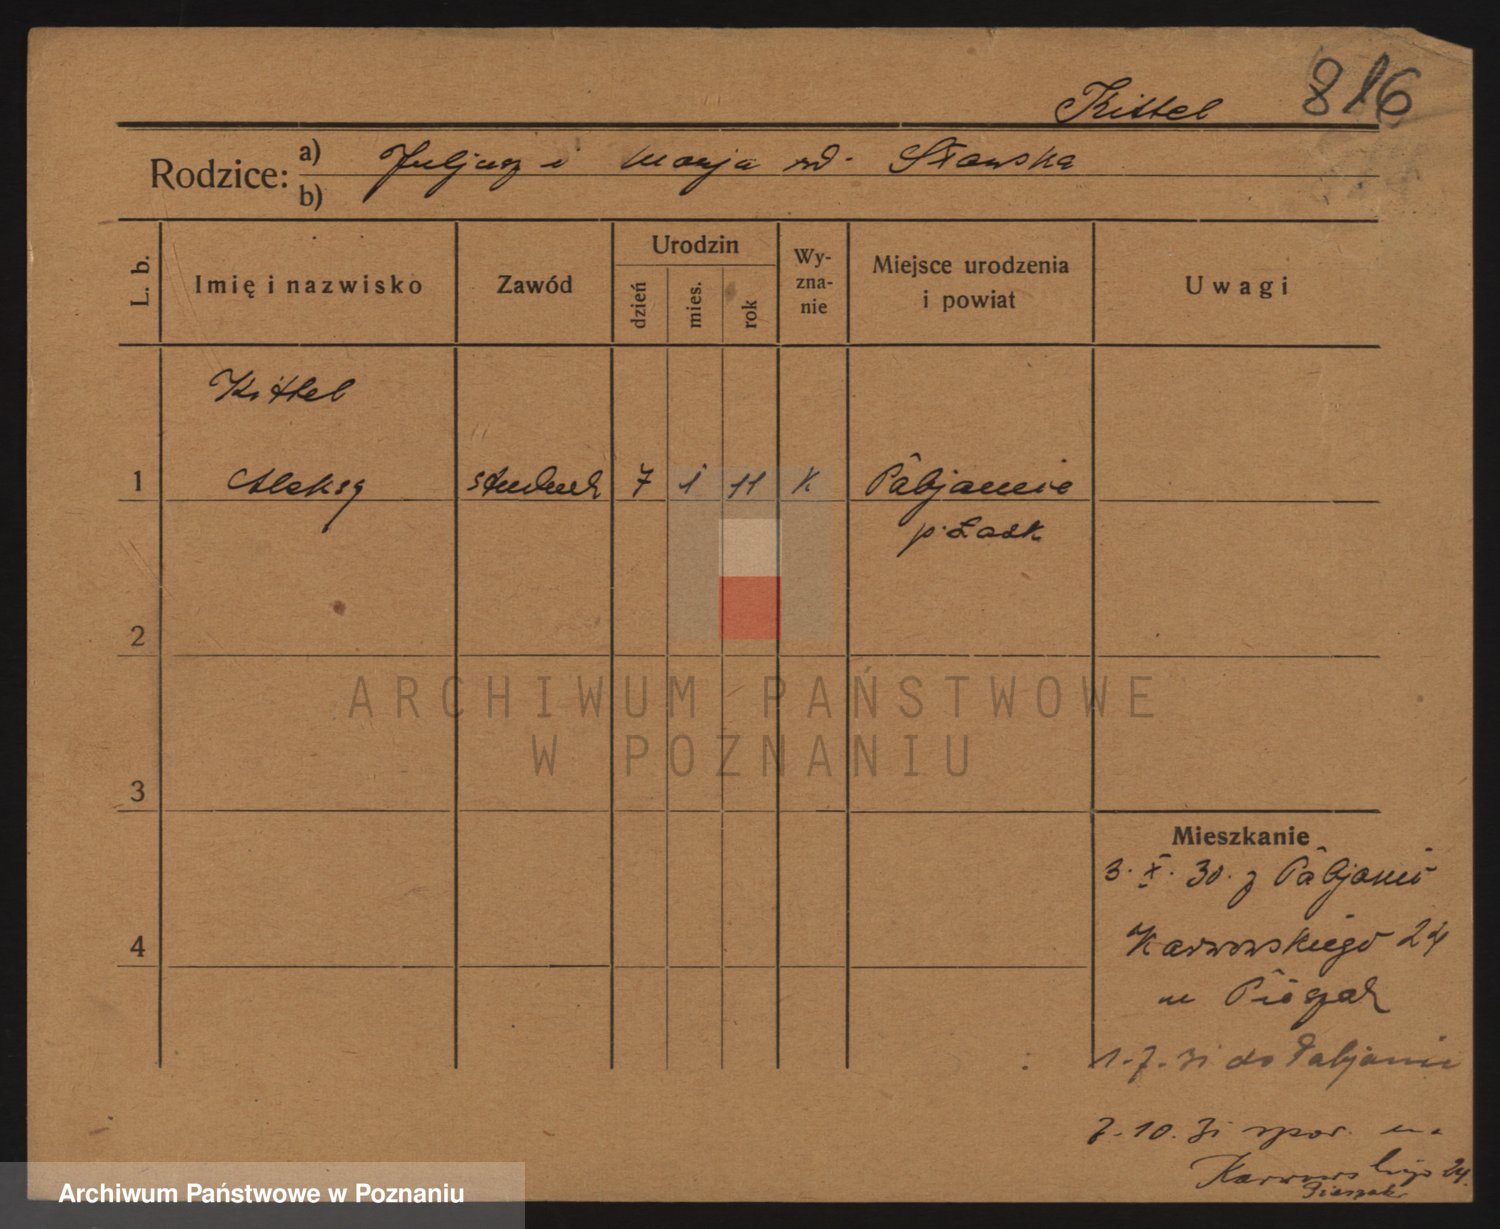 Kittel 816
Rodzice: a) Juljusz i Marja rd. Sławska
b)
L. b. Imię i nazwisko Zawód Urodzin dzień mies. rok Wy-zna-nie Miejsce urodzenia i powiat Uwagi
Kittel
1 Aleksy student 7 1 11 K Pabjanice
p. Łask
2
ARCHIWUM PAŃSTWOWE
W POZNANIU
3
Mieszkanie
3. X. 30. z Pabjanic
4 Karwowskiego 24
u
1. 7. 31 do Pabjanic
7. 10. 31 na
Karwowskiego 24
Archiwum Państwowe w Poznaniu